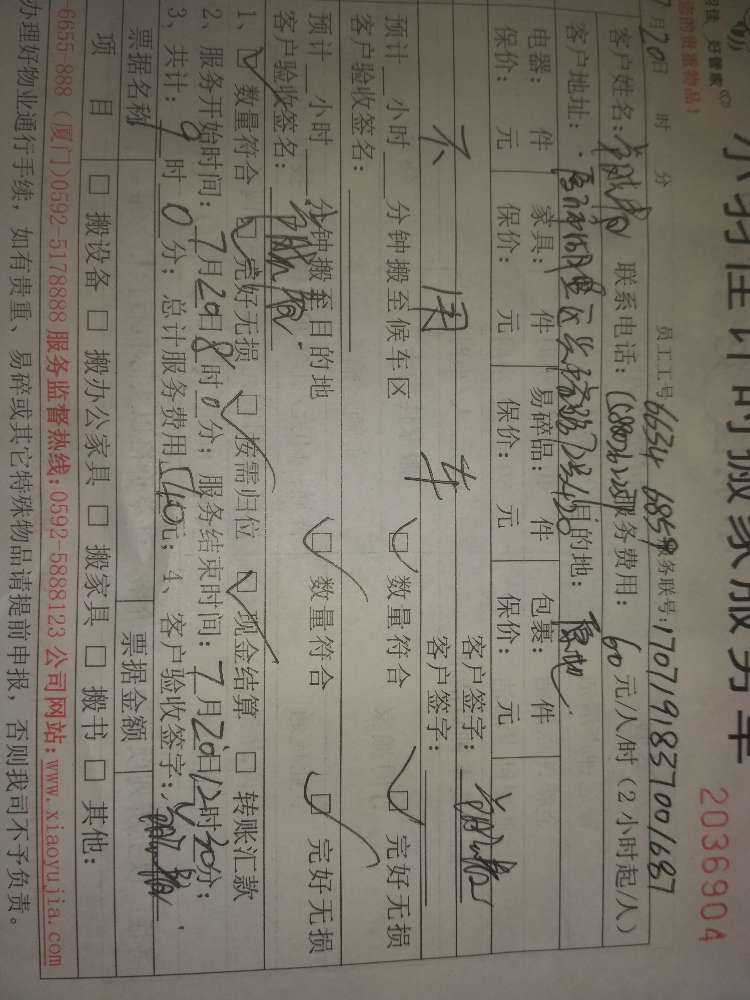 好管家
贵重物品！
小羽佳计时搬家服务卡
2036904
7月20日 时 分 员工工号 6634 6859 服务联号：1707191837001687
客户姓名： 联系电话： 服务费用：60元/人/时（2小时起/人）
客户地址： 目的地：原地
电器： 件 家具： 件 易碎品： 件 包裹： 件
保价： 元 保价： 元 保价： 元 保价： 元
客户签字：
不用车 客户签字：
预计 小时 分钟搬至候车区 数量符合 完好无损
客户验收签名：
预计 小时 分钟搬至目的地 数量符合 完好无损
客户验收签名：
1、 数量符合 完好无损 按需归位 现金结算 转账汇款
2、服务开始时间：7月20日8时0分；服务结束时间：7月20日12时30分；
3、共计：9时0分；总计服务费用540元；4、客户验收签字：
票据名称 票据金额
项目 搬设备 搬办公家具 搬家具 搬书 其他：
6655-888（厦门）0592-5178888 服务监督热线：0592-5888123 公司网站：www.xiaoyujia.com
办理好物业通行手续，如有贵重、易碎或其它特殊物品请提前申报，否则我司不予负责。